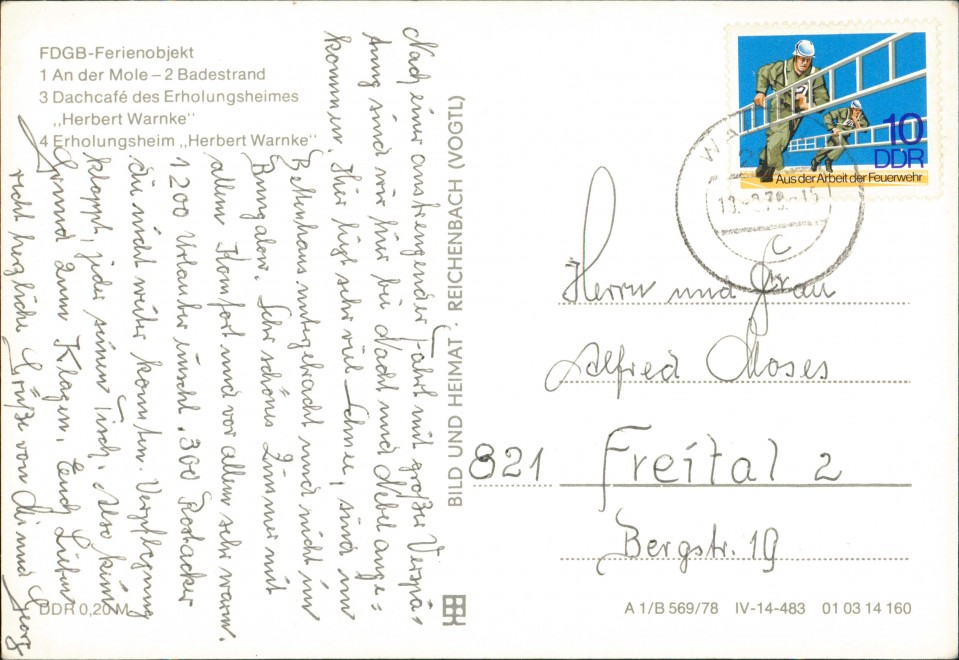 FDGB-Ferienobjekt
1 An der Mole – 2 Badestrand
3 Dachcafé des Erholungsheimes
„Herbert Warnke"
4 Erholungsheim „Herbert Warnke"
Nach einer anstrengender Fahrt mit großer Verspä-
tung sind wir hier bei Nacht und Nebel ange=
kommen. Hier liegt sehr viel Schnee, sind im
Bettenhaus untergebracht und nicht im
Bungalow. Sehr schönes Zimmer mit
allem Komfort und vor allem sehr warm.
1200 Urlauber einschl. 300 Rostocker
die nicht weiter konnten. Verpflegung
klappt, jeder seinen Tisch. Also kein
Grund zum Klagen. Euch Lieben
recht herzliche Grüße von Di und Georg
DDR 0,20 M
BILD UND HEIMAT · REICHENBACH (VOGTL)
10
DDR
Aus der Arbeit der Feuerwehr
Herrn und Frau
Alfred Moses
821 Freital 2
Bergstr. 19
A 1/B 569/78 IV-14-483 01 03 14 160